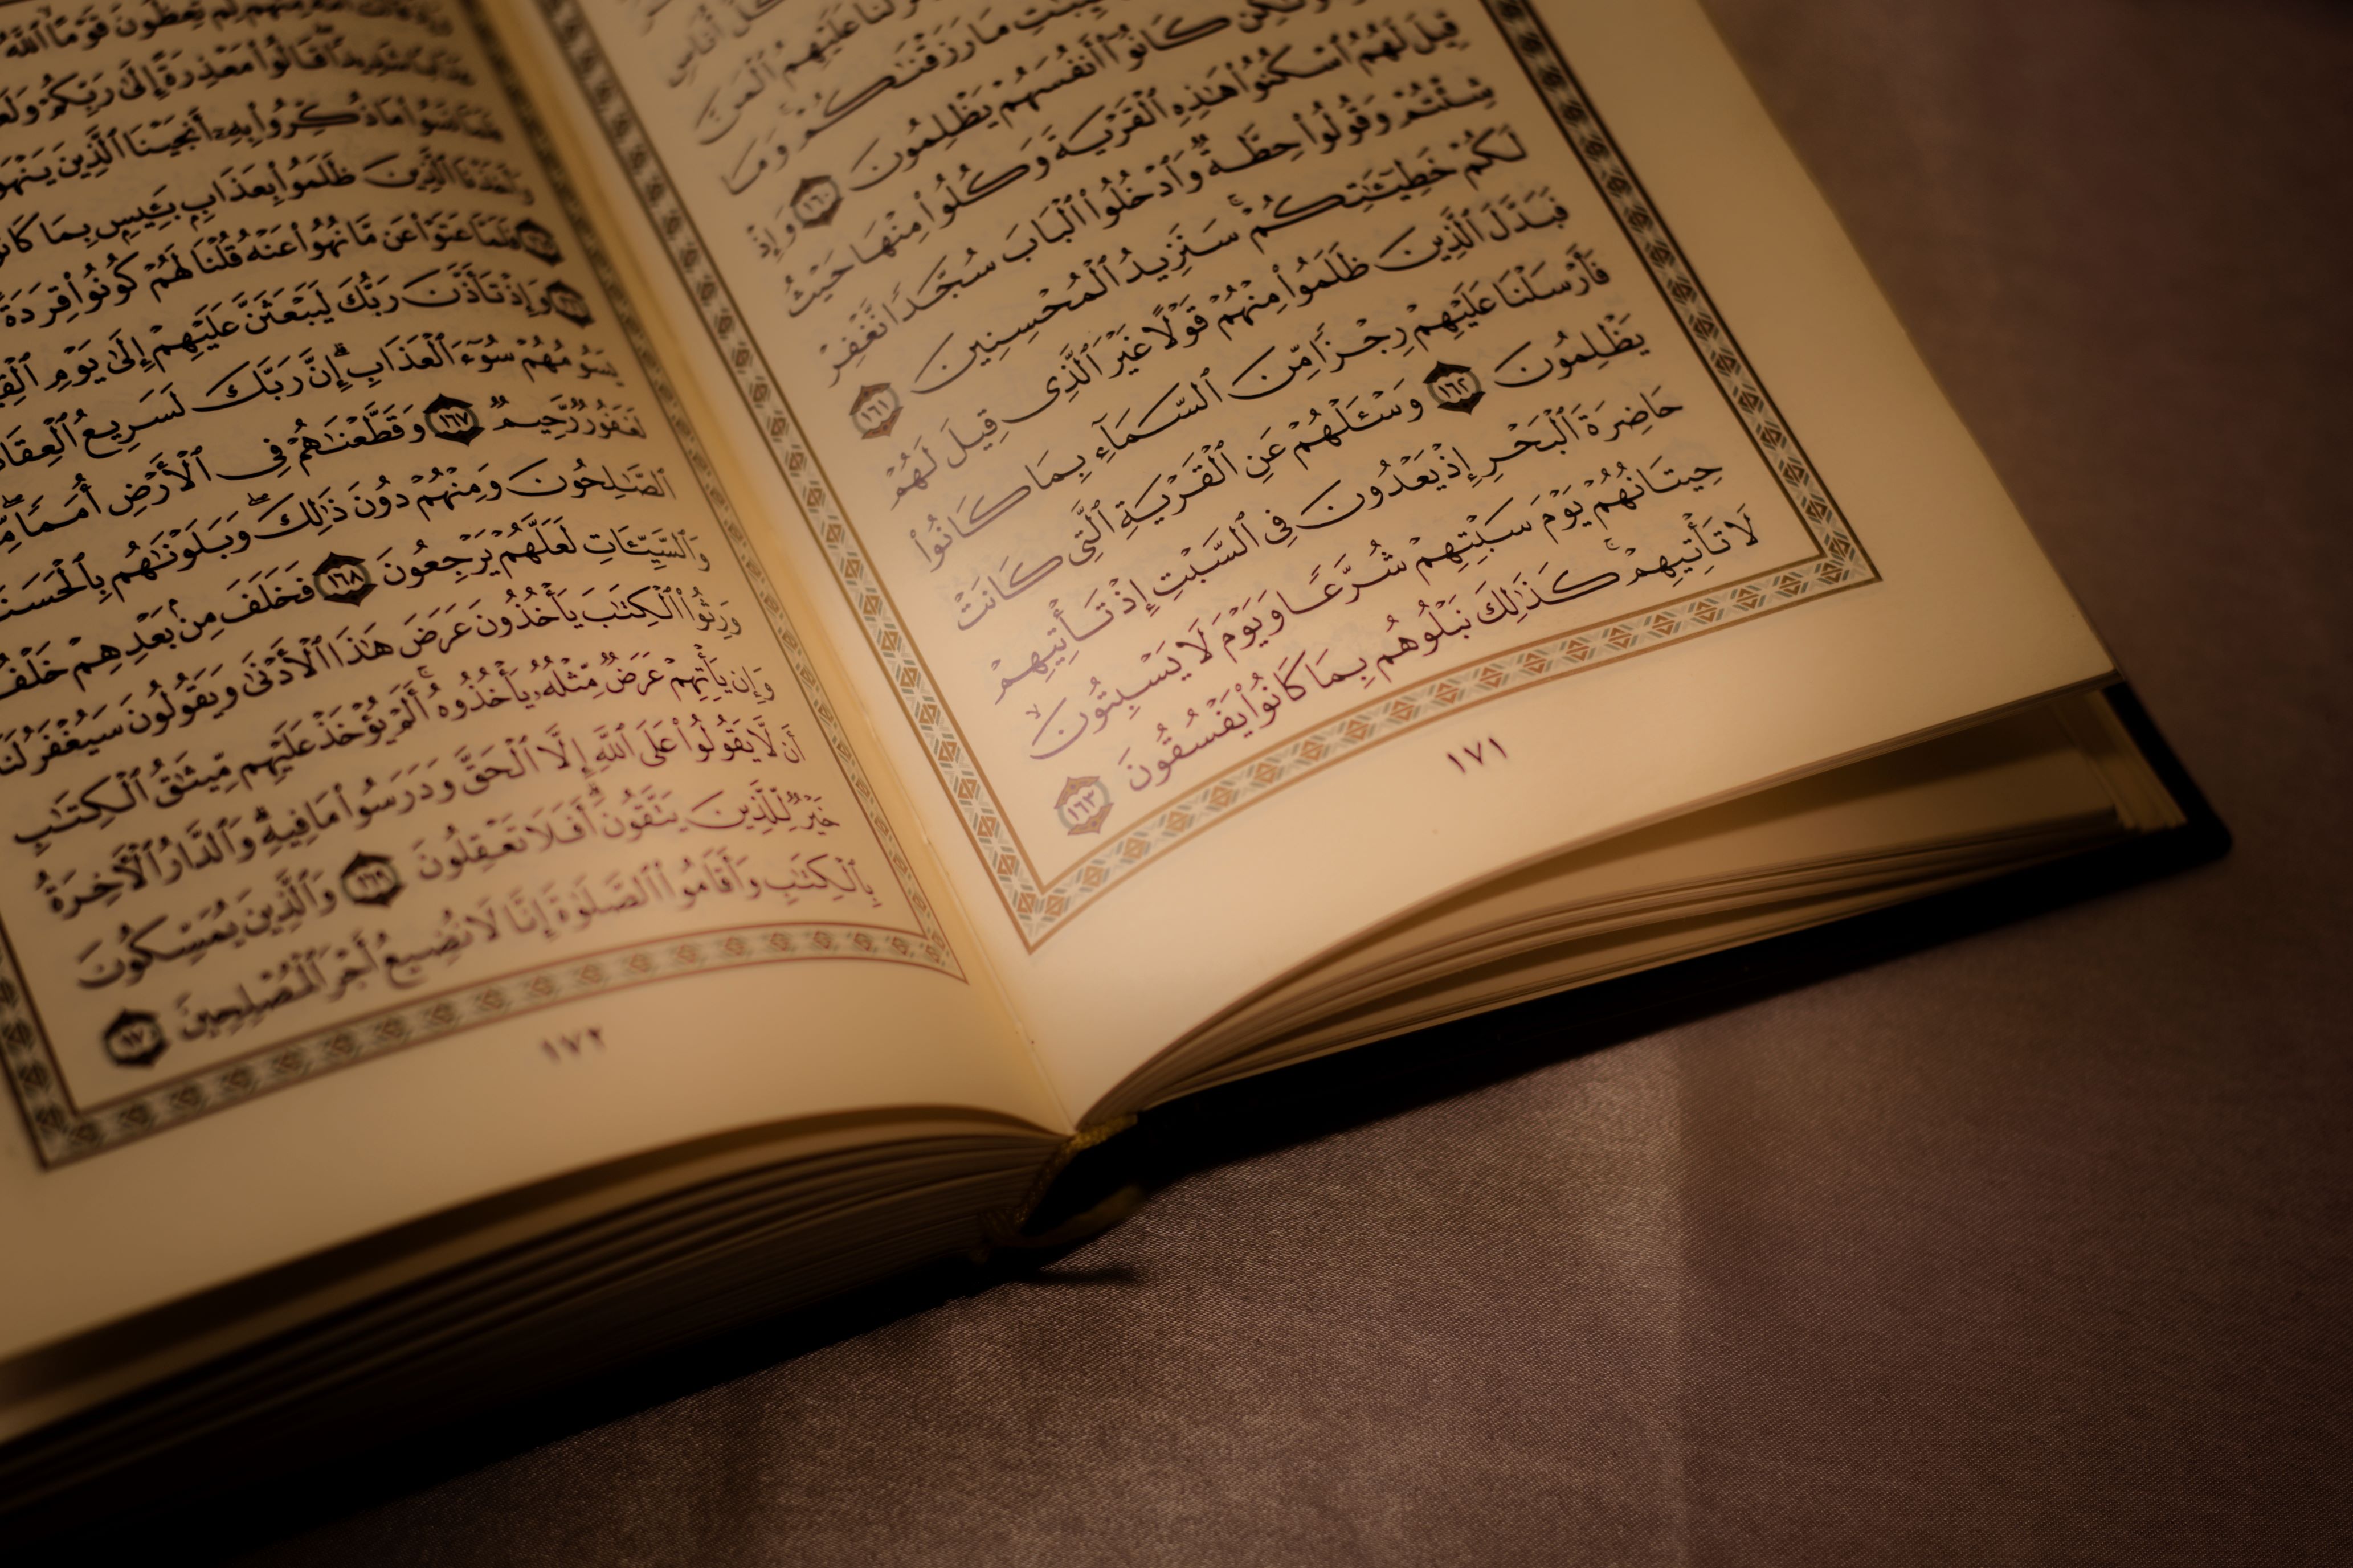 كُلُّ أُنَاسٍ
عَلَيْهِمُ ٱلْمَنَّ
مَا رَزَقْنَٰكُمْ ۚ وَمَا
وَلَٰكِن كَانُوٓا۟ أَنفُسَهُمْ يَظْلِمُونَ ١٦٠ وَإِذْ
قِيلَ لَهُمُ ٱسْكُنُوا۟ هَٰذِهِ ٱلْقَرْيَةَ وَكُلُوا۟ مِنْهَا حَيْثُ
شِئْتُمْ وَقُولُوا۟ حِطَّةٌ وَٱدْخُلُوا۟ ٱلْبَابَ سُجَّدًا نَّغْفِرْ
لَكُمْ خَطِيٓـَٰٔتِكُمْ ۚ سَنَزِيدُ ٱلْمُحْسِنِينَ ١٦١
فَبَدَّلَ ٱلَّذِينَ ظَلَمُوا۟ مِنْهُمْ قَوْلًا غَيْرَ ٱلَّذِى قِيلَ لَهُمْ
فَأَرْسَلْنَا عَلَيْهِمْ رِجْزًا مِّنَ ٱلسَّمَآءِ بِمَا كَانُوا۟
يَظْلِمُونَ ١٦٢ وَسْـَٔلْهُمْ عَنِ ٱلْقَرْيَةِ ٱلَّتِى كَانَتْ
حَاضِرَةَ ٱلْبَحْرِ إِذْ يَعْدُونَ فِى ٱلسَّبْتِ إِذْ تَأْتِيهِمْ
حِيتَانُهُمْ يَوْمَ سَبْتِهِمْ شُرَّعًا وَيَوْمَ لَا يَسْبِتُونَ ۙ
لَا تَأْتِيهِمْ ۚ كَذَٰلِكَ نَبْلُوهُم بِمَا كَانُوا۟ يَفْسُقُونَ ١٦٣
١٧١
مِّنْهُمْ لِمَ تَعِظُونَ قَوْمًا ٱللَّهُ
شَدِيدًا ۖ قَالُوا۟ مَعْذِرَةً إِلَىٰ رَبِّكُمْ
نَسُوا۟ مَا ذُكِّرُوا۟ بِهِۦٓ أَنجَيْنَا ٱلَّذِينَ
وَأَخَذْنَا ٱلَّذِينَ ظَلَمُوا۟ بِعَذَابٍۭ بَـِٔيسٍۭ بِمَا
١٦٥ فَلَمَّا عَتَوْا۟ عَن مَّا نُهُوا۟ عَنْهُ قُلْنَا لَهُمْ كُونُوا۟ قِرَدَةً
١٦٦ وَإِذْ تَأَذَّنَ رَبُّكَ لَيَبْعَثَنَّ عَلَيْهِمْ إِلَىٰ يَوْمِ
يَسُومُهُمْ سُوٓءَ ٱلْعَذَابِ ۗ إِنَّ رَبَّكَ لَسَرِيعُ
لَغَفُورٌ رَّحِيمٌ ١٦٧ وَقَطَّعْنَٰهُمْ فِى ٱلْأَرْضِ أُمَمًا ۖ
ٱلصَّٰلِحُونَ وَمِنْهُمْ دُونَ ذَٰلِكَ ۖ وَبَلَوْنَٰهُم
وَٱلسَّيِّـَٔاتِ لَعَلَّهُمْ يَرْجِعُونَ ١٦٨ فَخَلَفَ مِنۢ بَعْدِهِمْ
وَرِثُوا۟ ٱلْكِتَٰبَ يَأْخُذُونَ عَرَضَ هَٰذَا ٱلْأَدْنَىٰ وَيَقُولُونَ سَيُغْفَرُ لَنَا
وَإِن يَأْتِهِمْ عَرَضٌ مِّثْلُهُۥ يَأْخُذُوهُ ۚ أَلَمْ يُؤْخَذْ عَلَيْهِم مِّيثَٰقُ ٱلْكِتَٰبِ
أَن لَّا يَقُولُوا۟ عَلَى ٱللَّهِ إِلَّا ٱلْحَقَّ وَدَرَسُوا۟ مَا فِيهِ ۗ وَٱلدَّارُ ٱلْـَٔاخِرَةُ
خَيْرٌ لِّلَّذِينَ يَتَّقُونَ ۗ أَفَلَا تَعْقِلُونَ ١٦٩ وَٱلَّذِينَ يُمَسِّكُونَ
بِٱلْكِتَٰبِ وَأَقَامُوا۟ ٱلصَّلَوٰةَ إِنَّا لَا نُضِيعُ أَجْرَ ٱلْمُصْلِحِينَ ١٧٠
١٧٢